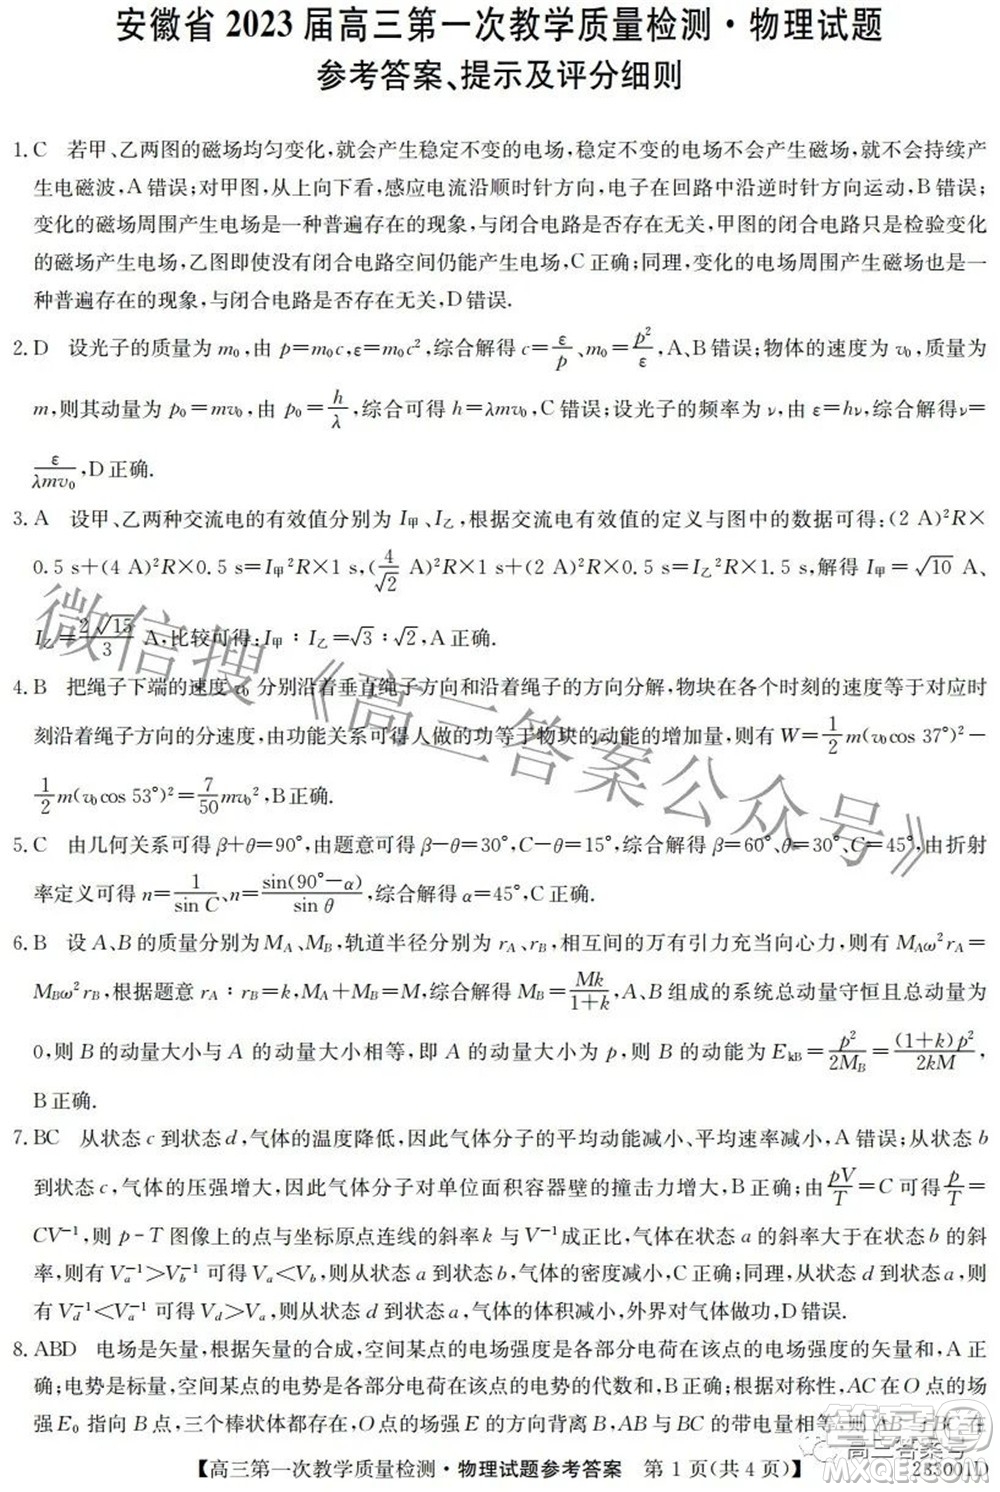 安徽省 2023 届高三第一次教学质量检测·物理试题
参考答案、提示及评分细则
1. C 若甲、乙两图的磁场均匀变化,就会产生稳定不变的电场,稳定不变的电场不会产生磁场,就不会持续产
生电磁波,A 错误;对甲图,从上向下看,感应电流沿顺时针方向,电子在回路中沿逆时针方向运动,B 错误;
变化的磁场周围产生电场是一种普遍存在的现象,与闭合电路是否存在无关,甲图的闭合电路只是检验变化
的磁场产生电场,乙图即使没有闭合电路空间仍能产生电场,C 正确;同理,变化的电场周围产生磁场也是一
种普遍存在的现象,与闭合电路是否存在无关,D 错误.
2. D 设光子的质量为 m₀,由 p=m₀c,ε=m₀c²,综合解得 c=ε/p、m₀=p²/ε,A、B 错误;物体的速度为 v₀,质量为
m,则其动量为 p₀=mv₀,由 p₀=h/λ,综合可得 h=λmv₀,C 错误;设光子的频率为 ν,由 ε=hν,综合解得ν=
ε/λmv₀,D 正确.
3. A 设甲、乙两种交流电的有效值分别为 I甲、I乙,根据交流电有效值的定义与图中的数据可得:(2 A)²R×
0.5 s+(4 A)²R×0.5 s=I甲²R×1 s,(4/√2 A)²R×1 s+(2 A)²R×0.5 s=I乙²R×1.5 s,解得 I甲=√10 A、
I乙=2√15/3 A,比较可得:I甲∶I乙=√3∶√2,A 正确.
4. B 把绳子下端的速度 v₀ 分别沿着垂直绳子方向和沿着绳子的方向分解,物块在各个时刻的速度等于对应时
刻沿着绳子方向的分速度,由功能关系可得人做的功等于物块的动能的增加量,则有 W=1/2 m(v₀cos 37°)²−
1/2 m(v₀cos 53°)²=7/50 mv₀²,B 正确.
5. C 由几何关系可得 β+θ=90°,由题意可得 β−θ=30°,C−θ=15°,综合解得 β=60°、θ=30°、C=45°,由折射
率定义可得 n=1/sin C、n=sin(90°−α)/sin θ,综合解得 α=45°,C 正确.
6. B 设 A、B 的质量分别为 M_A、M_B,轨道半径分别为 r_A、r_B,相互间的万有引力充当向心力,则有 M_Aω²r_A=
M_Bω²r_B,根据题意 r_A∶r_B=k,M_A+M_B=M,综合解得 M_B=Mk/1+k,A、B 组成的系统总动量守恒且总动量为
0,则 B 的动量大小与 A 的动量大小相等,即 A 的动量大小为 p,则 B 的动能为 E_kB=p²/2M_B=(1+k)p²/2kM,
B 正确.
7. BC 从状态 c 到状态 d,气体的温度降低,因此气体分子的平均动能减小、平均速率减小,A 错误;从状态 b
到状态 c,气体的压强增大,因此气体分子对单位面积容器壁的撞击力增大,B 正确;由pV/T=C 可得p/T=
CV⁻¹,则 p-T 图像上的点与坐标原点连线的斜率 k 与 V⁻¹成正比,气体在状态 a 的斜率大于在状态b 的斜
率,则有 V_a⁻¹>V_b⁻¹ 可得 V_a<V_b,则从状态 a 到状态 b,气体的密度减小,C 正确;同理,从状态 d 到状态 a,则
有 V_d⁻¹<V_a⁻¹ 可得 V_d>V_a,则从状态 d 到状态 a,气体的体积减小,外界对气体做功,D 错误.
8. ABD 电场是矢量,根据矢量的合成,空间某点的电场强度是各部分电荷在该点的电场强度的矢量和,A 正
确;电势是标量,空间某点的电势是各部分电荷在该点的电势的代数和,B 正确;根据对称性,AC 在 O 点的场
强 E₀ 指向 B 点,三个棒状体都存在,O 点的场强 E 的方向背离 B,AB 与 BC 的带电量相等,则 AB 与 BC 在
【高三第一次教学质量检测·物理试题参考答案 第 1 页(共 4 页)】 283001D
微信搜《高三答案公众号》
高三答案号
答案圈
MXQE.COM